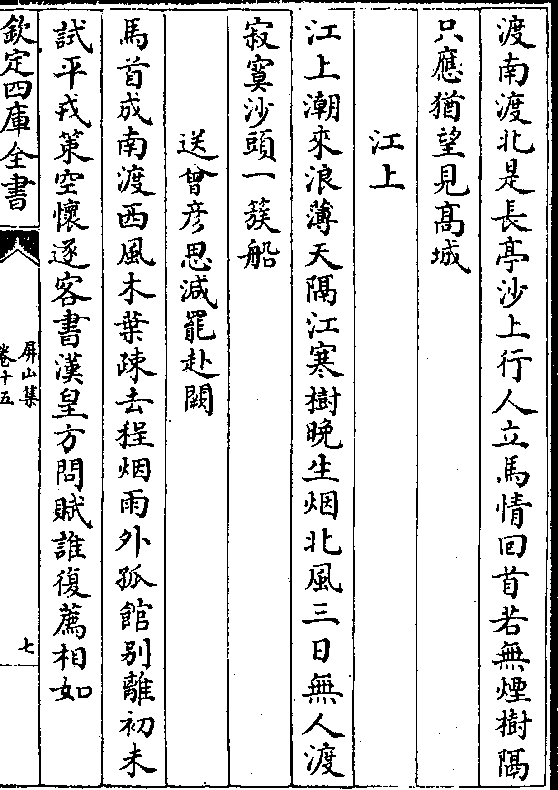 渡南渡北是長亭沙上行人立馬情回首若無煙樹隔
只應猶望見髙城
江上
江上潮來浪薄天隔江寒樹晚生烟北風三日無人渡
寂寞沙頭一簇船
送曾彦思減罷赴闕
馬首成南渡西風木葉疎去程烟雨外孤館别離初未
試平戎䇿空懷逐客書漢皇方問賦誰復薦相如
欽定四庫全書
屏山集
卷十五
七